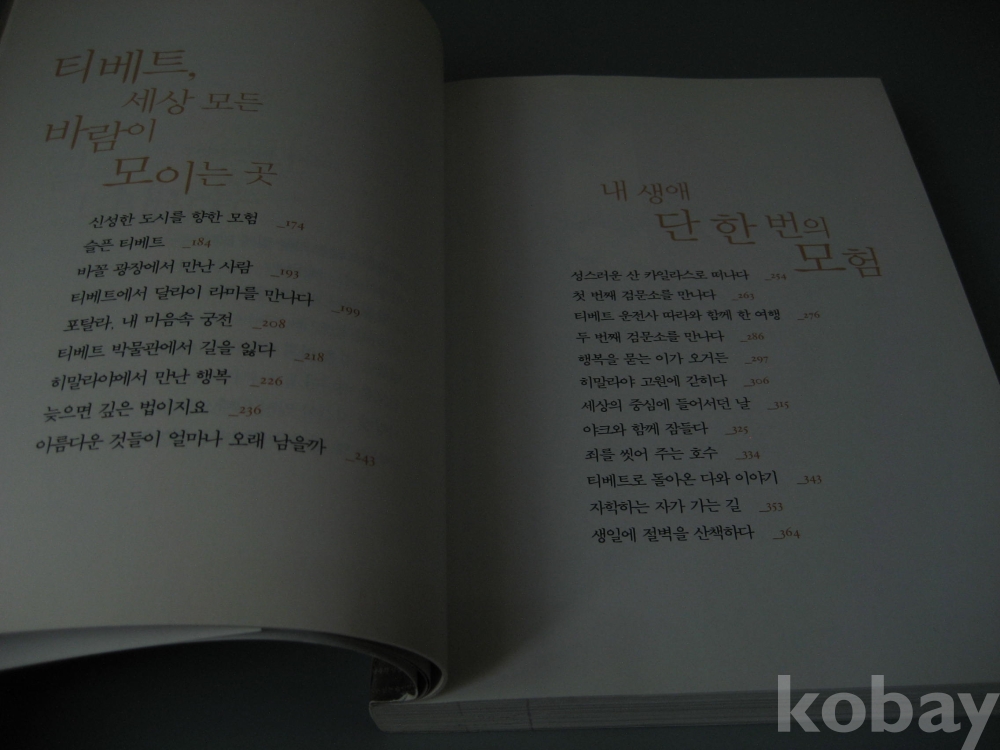 티베트,
세상 모든
바람이
모이는 곳
신성한 도시를 향한 모험 _174
슬픈 티베트 _184
바꼴 광장에서 만난 사람 _193
티베트에서 달라이 라마를 만나다 _199
포탈라, 내 마음속 궁전 _208
티베트 박물관에서 길을 잃다 _218
히말라야에서 만난 행복 _226
늦으면 깊은 법이지요 _236
아름다운 것들이 얼마나 오래 남을까 _243
내 생애
단 한 번의
모험
성스러운 산 카일라스로 떠나다 _254
첫 번째 검문소를 만나다 _263
티베트 운전사 따라와 함께 한 여행 _276
두 번째 검문소를 만나다 _286
행복을 묻는 이가 오거든 _297
히말라야 고원에 갇히다 _306
세상의 중심에 들어서던 날 _315
야크와 함께 잠들다 _325
죄를 씻어 주는 호수 _334
티베트로 돌아온 다와 이야기 _343
자학하는 자가 가는 길 _353
생일에 절벽을 산책하다 _364
kobay